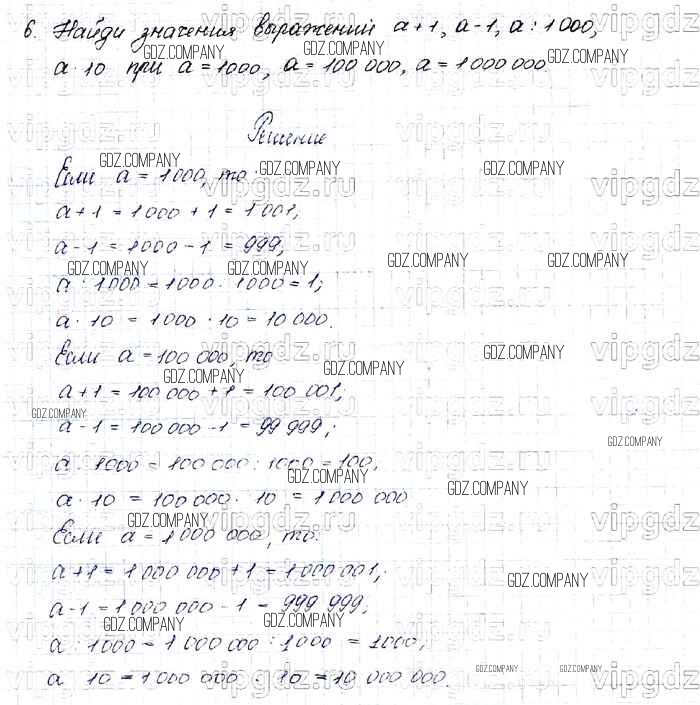 6. Найди значения выражений a+1, a-1, a : 1000,
a · 10 при a = 1000, a = 100 000, a = 1 000 000.
Решение
Если a = 1000, то:
a+1 = 1000 + 1 = 1001,
a-1 = 1000 - 1 = 999,
a : 1000 = 1000 : 1000 = 1;
a · 10 = 1000 · 10 = 10 000.
Если a = 100 000, то
a+1 = 100 000 + 1 = 100 001,
a-1 = 100 000 - 1 = 99 999;
a : 1000 = 100 000 : 1000 = 100,
a · 10 = 100 000 · 10 = 1 000 000
Если a = 1 000 000, то:
a+1 = 1 000 000 + 1 = 1 000 001;
a-1 = 1 000 000 - 1 = 999 999;
a : 1000 = 1 000 000 : 1000 = 1000,
a · 10 = 1 000 000 · 10 = 10 000 000.
GDZ.COMPANY
vipgdz.ru